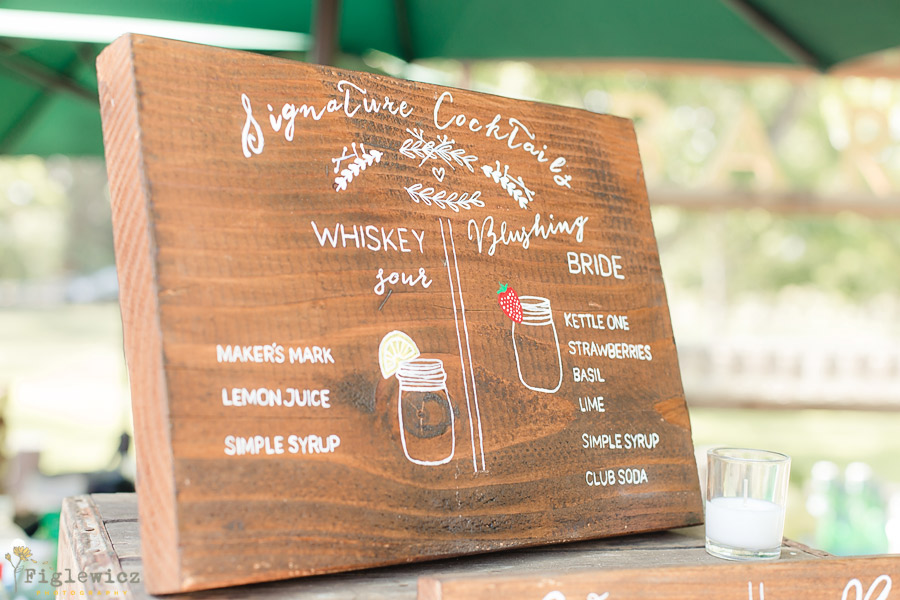 Signature Cocktails
WHISKEY
sour
MAKER'S MARK
LEMON JUICE
SIMPLE SYRUP
Blushing
BRIDE
KETTLE ONE
STRAWBERRIES
BASIL
LIME
SIMPLE SYRUP
CLUB SODA
BAR
Figlewicz
PHOTOGRAPHY